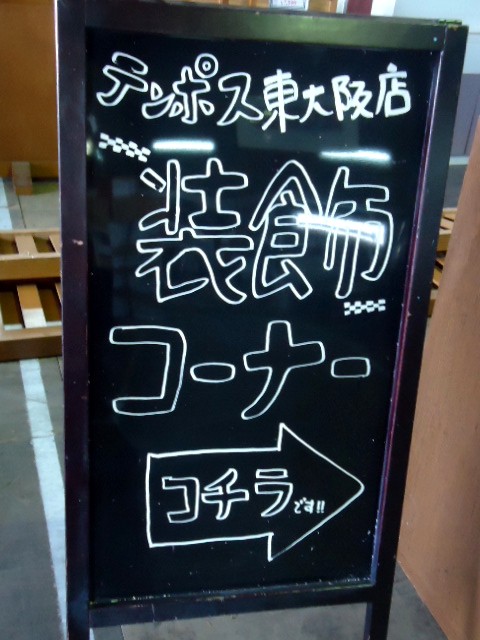 テンポス東大阪店
装飾
コーナー
コチラです!!